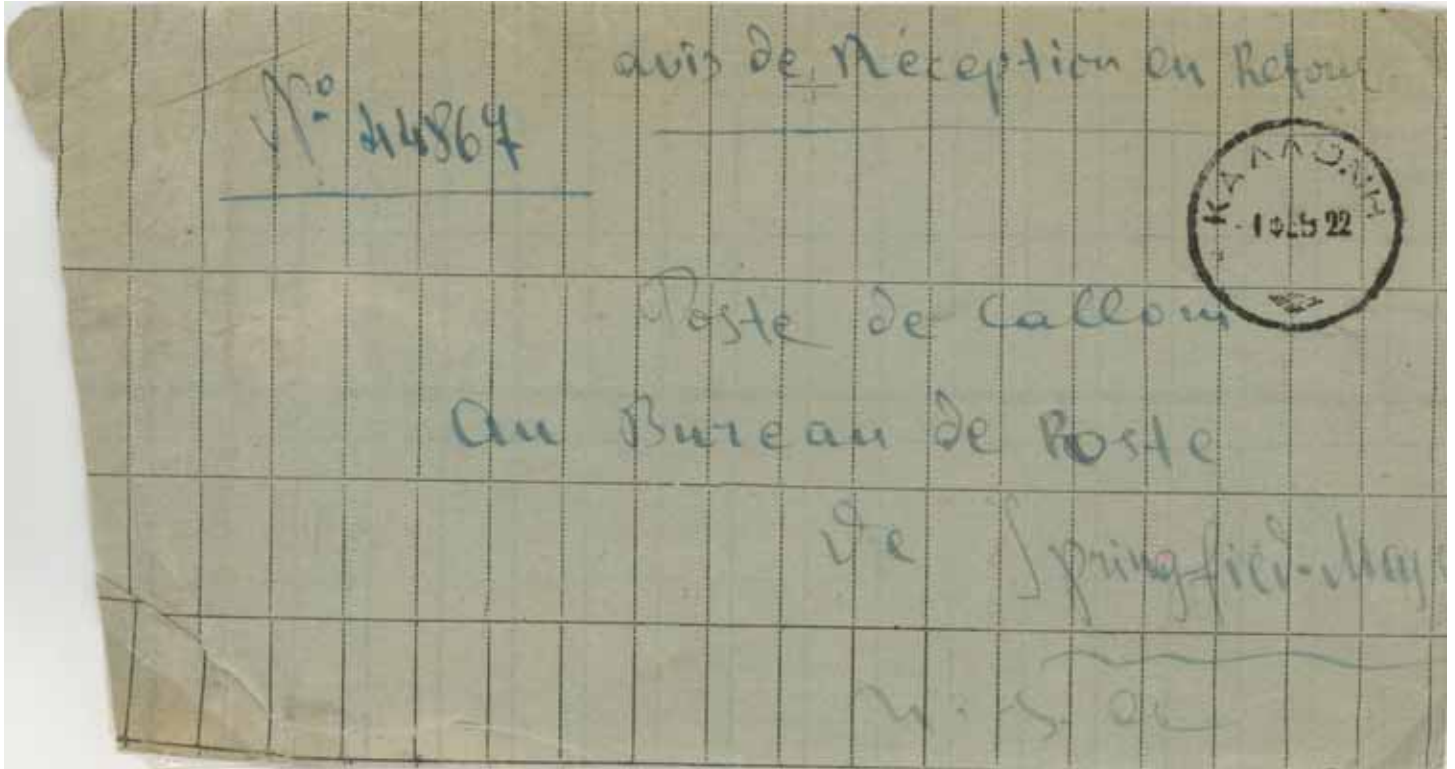 avis de Réception en Retour
Nº 44867
ΚΑΛΛΟΝΗ
1 ΦΕΒ 22
Poste de Calloni
Au Bureau de Poste
de Springfield-Mass
U.S.A